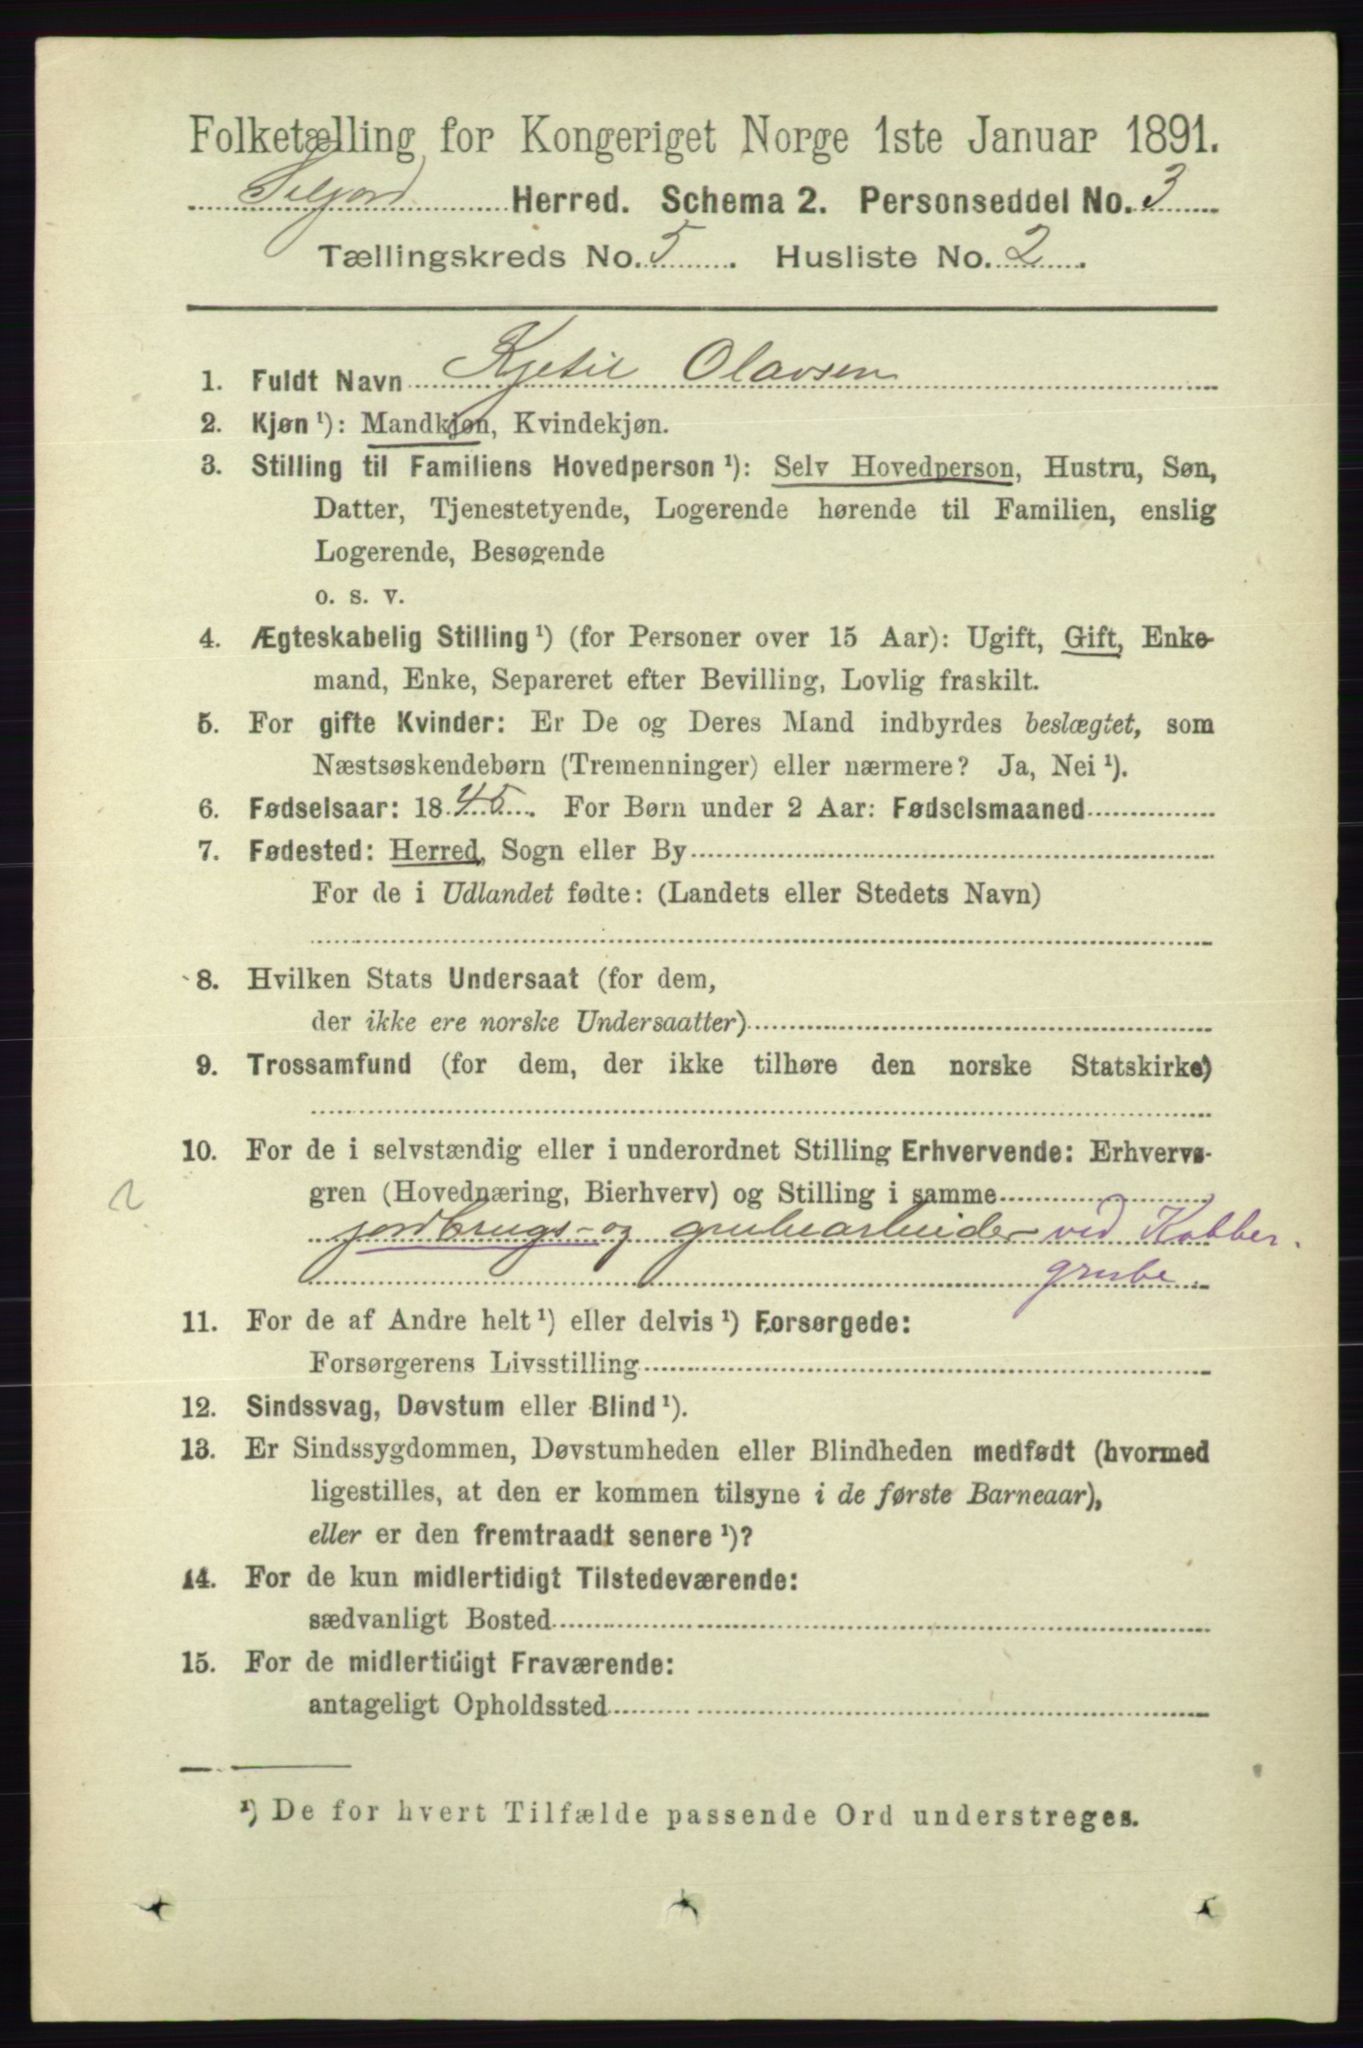 Folketælling for Kongeriget Norge 1ste Januar 1891.
Seljord Herred. Schema 2. Personseddel No. 3
Tællingskreds No. 5. Husliste No. 2.
1. Fuldt Navn Kjetil Olavsen
2. Kjøn ¹): Mandkjøn, Kvindekjøn.
3. Stilling til Familiens Hovedperson ¹): Selv Hovedperson, Hustru, Søn,
Datter, Tjenestetyende, Logerende hørende til Familien, enslig
Logerende, Besøgende
o. s. v.
4. Ægteskabelig Stilling ¹) (for Personer over 15 Aar): Ugift, Gift, Enke-
mand, Enke, Separeret efter Bevilling, Lovlig fraskilt.
5. For gifte Kvinder: Er De og Deres Mand indbyrdes beslægtet, som
Næstsøskendebørn (Tremenninger) eller nærmere? Ja, Nei ¹).
6. Fødselsaar: 1845. For Børn under 2 Aar: Fødselsmaaned
7. Fødested: Herred, Sogn eller By
For de i Udlandet fødte: (Landets eller Stedets Navn)
8. Hvilken Stats Undersaat (for dem,
der ikke ere norske Undersaatter)
9. Trossamfund (for dem, der ikke tilhøre den norske Statskirke)
10. For de i selvstændig eller i underordnet Stilling Erhvervende: Erhvervs-
gren (Hovednæring, Bierhverv) og Stilling i samme
2
jordbrugs- og grubearbeider ved Kobber-
grube.
11. For de af Andre helt ¹) eller delvis ¹) Forsørgede:
Forsørgerens Livsstilling
12. Sindssvag, Døvstum eller Blind ¹).
13. Er Sindssygdommen, Døvstumheden eller Blindheden medfødt (hvormed
ligestilles, at den er kommen tilsyne i de første Barneaar),
eller er den fremtraadt senere ¹)?
14. For de kun midlertidigt Tilstedeværende:
sædvanligt Bosted
15. For de midlertidigt Fraværende:
antageligt Opholdssted
¹) De for hvert Tilfælde passende Ord understreges.